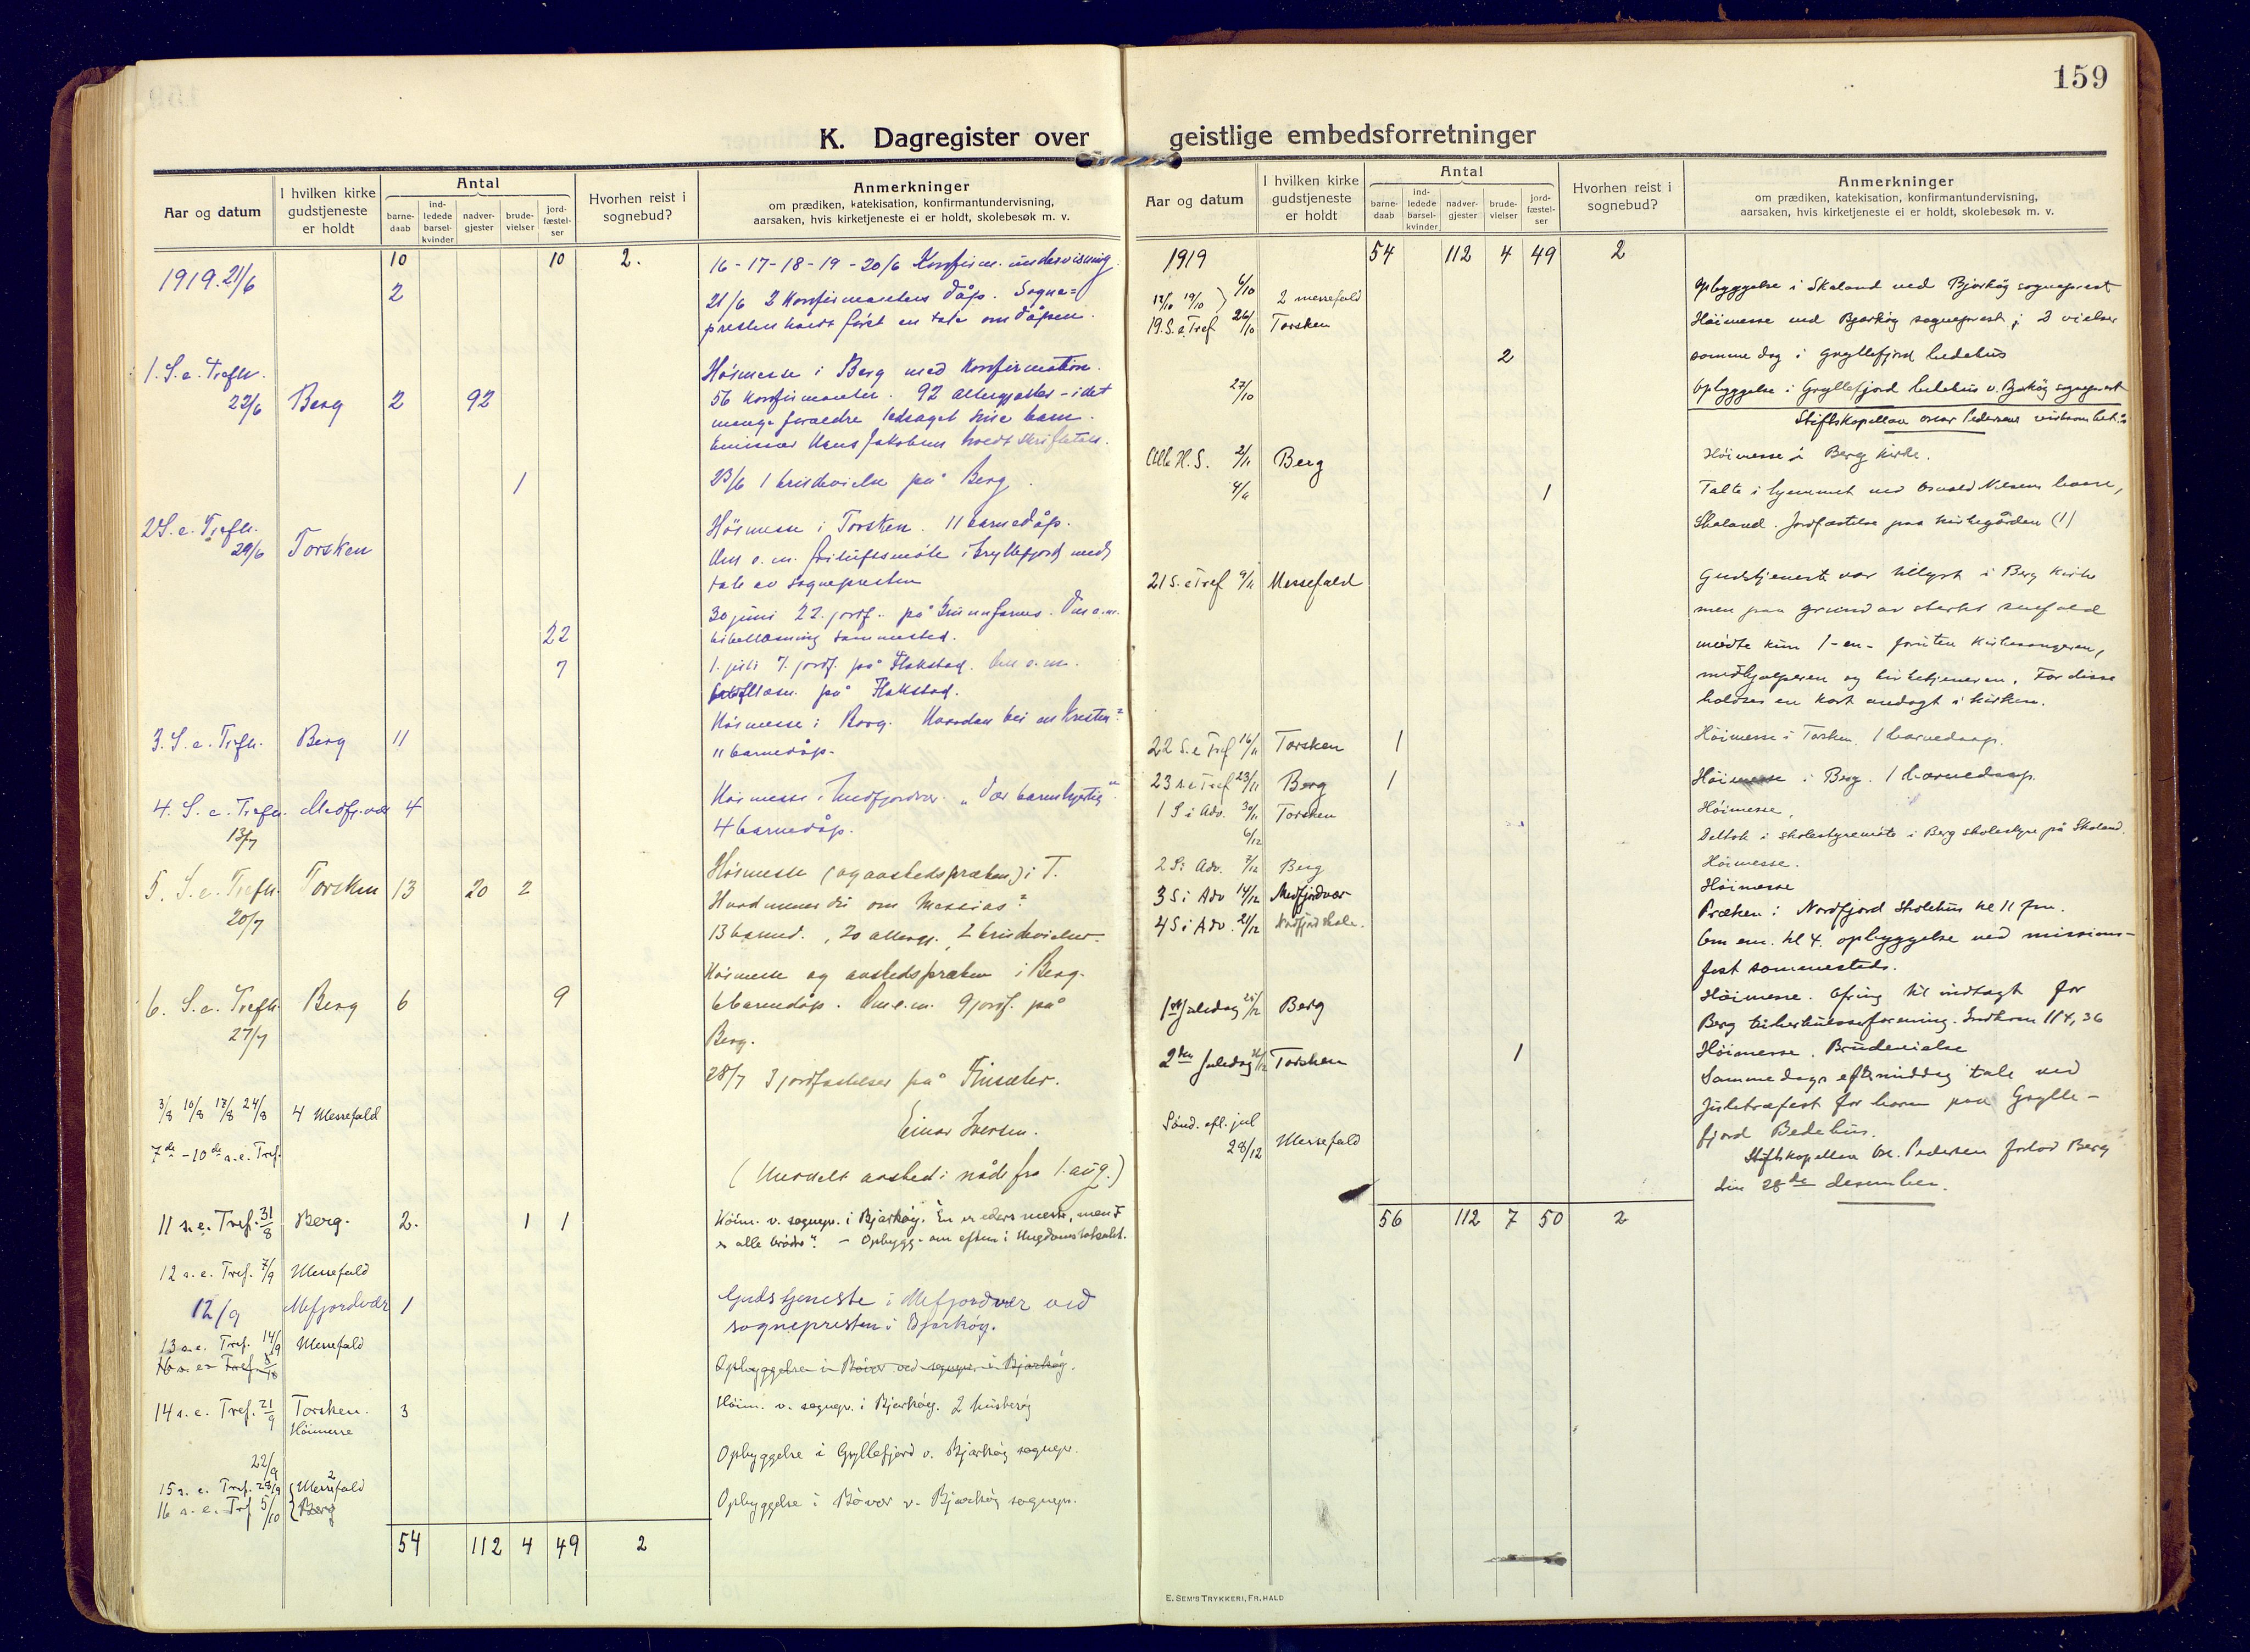 159
K. Dagregister over geistlige embedsforretninger
Aar og datum
I hvilken kirke gudstjeneste er holdt
Antal
barne-daab
ind-ledede barsel-kvinder
nadver-gjester
brude-vielser
jord-fæstel-ser
Hvorhen reist i sognebud?
Anmerkninger
om prædiken, katekisation, konfirmantundervisning,
aarsaken, hvis kirketjeneste ei er holdt, skolebesøk m. v.
1919. 21/6 10 10 2. 16-17-18-19-20/6 Konfirm. undervisning
2 21/6 2 Konfirmanters dåp. Sogne=
presten holdt først en tale om dåpen.
1. S. e. Trefh. Høimesse i Berg med Konfirmation.
22/6 Berg 2 92 56 Konfirmanter. 92 altergjester - idet
mange foraeldre ledsaget sine barn.
Emissær Hans Jakobsen holdt skriftetale.
1 23/6 1 brudevielse på Berg.
2 S. e. Trefh. Høimesse i Torsken. 11 barnedåp.
29/6 Torsken Om e. m. friluftsmøte i Gryllefjord med
tale av sognepresten
30 juni 22. jordf. på Grunnfarnes. Om e. m.
22 bibellæsning sammested.
7 1. juli 7. jordf. på Flakstad. Om e. m.
på Flakstad.
Høimesse i Berg. Hvordan bli en kristen?
3. S. e. Trefh. Berg 11 11 barnedåp.
4. S. e. Trefh. Medfj.vær 4 Høimesse i Medfjordvær. "Vær barmhjertig".
13/7 4 barnedåp.
Høimesse (og avskedspræken) i T.
5. S. e. Trefh. Torsken 13 20 2 Hvad mener du om Messias?
20/7 13 barned., 20 alterg. 2 brudevielser.
Høimesse og avskedspræken i Berg.
6. S. e. Trefh. Berg 6 9 6 barnedåp. Om e. m. 9 jordf. på
27/7 Berg.
28/7 3 jordfæstelser på Finsæter.
3/8 10/8 17/8 24/8 4 Messefald
Einar Iversen.
7de - 10de s. e. Tref.
(Meddelt avsked i nåde fra 1. aug.)
11 s. e. Tref. 31/8 Berg. 2. 1 1 Høim. v. sognepr. i Bjarkøy. "En er eders mester, men I
er alle brødre". - Opbygg. om eftm i Ungdomslokalet.
12 s. e. Tref. 7/9 Messefald
12/9 Mefjordvær 1 Gudstjeneste i Mefjordvær ved
sognepresten i Bjarkøy.
13 s. e. Tref. 14/9 Messefald
16 s. e. Tref. 5/10 Opbyggelse i Bøvær ved sognepr. i Bjarkøy.
14 s. e. Tref. 21/9 Torsken. 3 Høim. v. sognepr. i Bjarkøy. 2 husbesøg
Høimesse
22/9 Opbyggelse i Gryllefjord v. Bjarkøy sognepr.
15 s. e. Tref. 28/9 2 Messefald
16 s. e. Tref 5/10 Berg Opbyggelse i Bøvær v. Bjarkøy sognepr.
54 112 4 49 2
Aar og datum
I hvilken kirke gudstjeneste er holdt
Antal
barne-daab
ind-ledede barsel-kvinder
nadver-gjester
brude-vielser
jord-fæstel-ser
Hvorhen reist i sognebud?
Anmerkninger
om prædiken, katekisation, konfirmantundervisning,
aarsaken, hvis kirketjeneste ei er holdt, skolebesøk m. v.
1919 54 112 4 49 2
6/10 Opbyggelse i Skaland ved Bjarkøy sogneprest
12/10 19/10 2 messefald
19. S. e. Tref 26/10 Torsken Høimesse ved Bjarkøy sogneprest; 2 vielser
2 samme dag i Gryllefjord bedehus
27/10 Opbyggelse i Gryllefjord bedehus v. Bjarkøy sogneprest
Stiftskapellan Oscar Pedersens
Alle H. S. 2/11 Berg Høimesse i Berg kirke.
4/11 1 Talte i hjemmet ved Osvald Nilsens baare,
Skaland. Jordfæstelse paa kirkegården (1)
21 S. e Tref 9/11 Messefald Gudstjeneste var tillyst i Berg kirke
men paa grund av sterkt snefald
mødte kun 1-en- foruten kirkesangeren,
medhjelperen og kirketjeneren. For disse
holdtes en kort andagt i kirken.
22 S. e Tref 16/11 Torsken 1 Høimesse i Torsken. 1 barnedaap.
23 s. e Tref 23/11 Berg 1 Høimesse i Berg. 1 barnedaap.
1 S i Adv. 30/11 Torsken Høimesse,
6/12 Deltok i skolestyremøte i Berg skolestyre på Skaland.
2 S i Adv. 7/12 Berg Høimesse.
3 S i Adv 14/12 Medfjordvær Høimesse
4 S i Adv. 21/12 Nordfjord skole. Præken i Nordfjord skolehus kl 11 fm.
Om em. kl 4. opbyggelse ved missions-
fest sammesteds.
1ste Juledag 25/12 Berg Høimesse. Ofring til indtægt for
Berg tuberkuloseforening. Indkom 114,36
2den Juledag 26/12 Torsken 1 Høimesse. Brudevielse
Samme dags eftermiddag tale ved
Juletræfest for barn paa Grylle-
fjord Bedehus.
Sønd. eft. jul
28/12 Messefald Stiftskapellan Osc. Pedersen forlod Berg
den 28de desember.
56 112 7 50 2
E. SEM'S TRYKKERI, FR.HALD